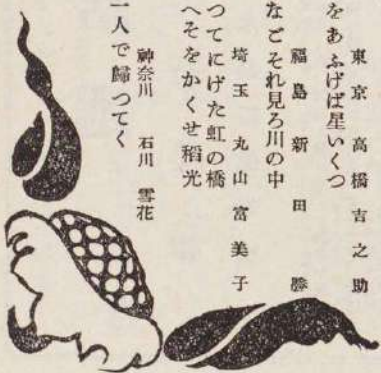 東京 高橋吉之助
をあふげば星いくつ
福島 新田 勝
なごそれ見ろ川の中
埼玉 丸山富美子
つてにげた虹の橋
へそをかくせ稻光
神奈川 石川 雪花
一人で歸つてく